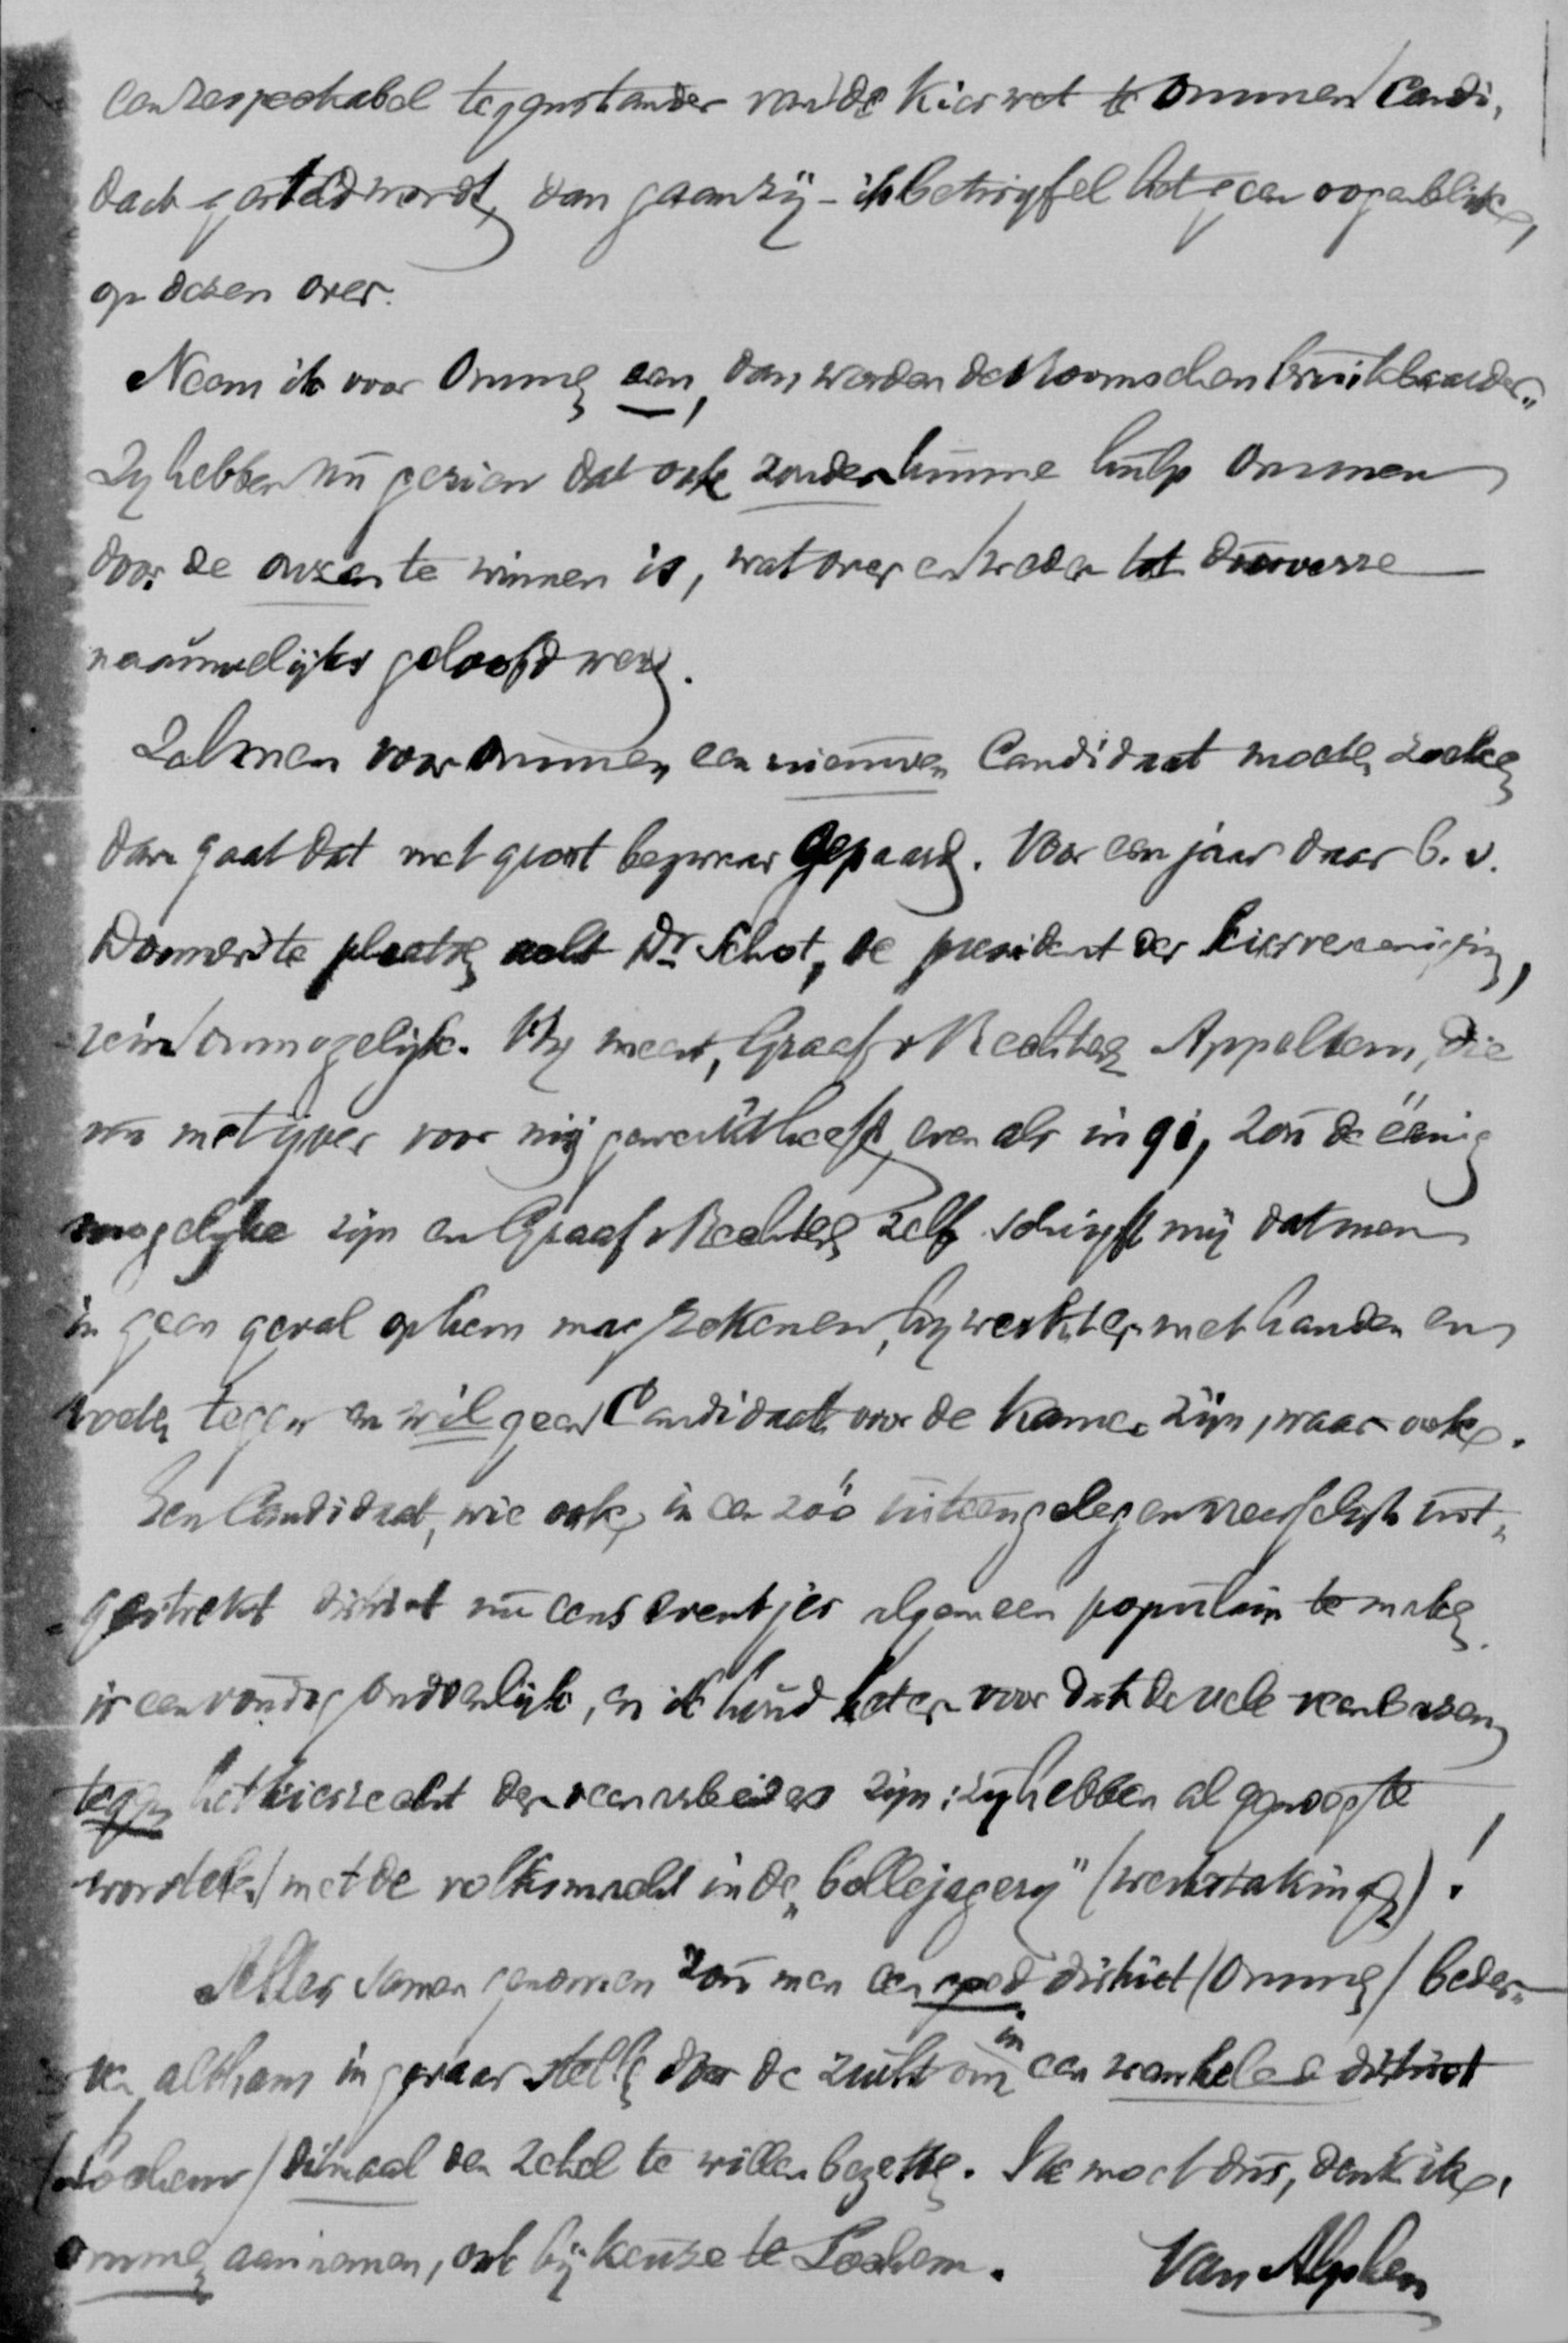 een respectabel tegenstander van de Kieswet te Ommen Candi-
daat gesteld wordt, dan gaan zij – ik betwijfel het geen oogenblik,
op dezen over.
Neem ik voor Ommen aan, dan worden de Roomschen bruikbaarder.
Zij hebben nu gezien dat ook zonder hunne hulp Ommen
door de onzen te winnen is, wat over en weder tot dusverre
naauwelijks geloofd werd.
Zal men voor Ommen een nieuwen Candidaat moeten zoeken
dan gaat dat met groot bezwaar gepaard. Voor een jaar daar b.v.
te plaatsen acht Dr Schot, de president der kiesvereeniging,
onmogelijk. Hij meent, Graaf v Rechteren Appeltern, die
nu met ijver voor mij gewerkt heeft, even als in 91, zou de éénig
mogelijke zijn en Graaf v Rechteren zelf schrijft mij dat men
in geen geval op hem mag rekenen, hij werkt er met handen en
voeten tegen en wil geen Candidaat voor de Kamer zijn, waar ook.
Een Candidaat, wie ook, in een zóó uiteengelegen vreeslijk uit-
gestrekt district nu eens eventjes algemeen populair te maken
is eenvoudig ondoenlijk, en ik houd het er voor dat de vele veenbazen
tegen het kiesrecht der veenarbeiders zijn; zij hebben al genoeg te
worstelen met de volksmacht in de „bollejagerij" (werkstaking)!
Alles samen genomen zou men een goed district (Ommen) beder-
ven, althans in gevaar stellen door de zucht om in een wankelend district
(Lochem) ditmaal den zetel te willen bezetten. Ik moet dus, denk ik,
Ommen aannemen, ook bij keuze te Lochem. Van Alphen